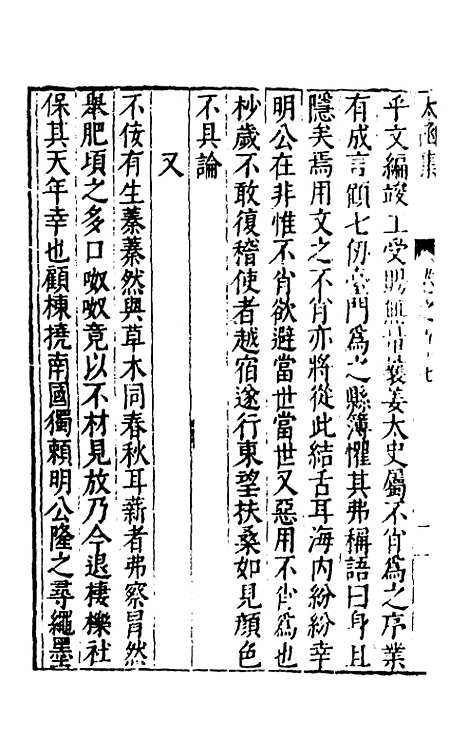 太函集 卷之九十七
乎文編竣工受賜無量曩姜太史屬不肖爲之序業
有成言顧七仞臺門爲之縣簿懼其弗稱語曰身且
隱矣焉用文之不肖亦將從此結舌耳海内紛紛幸
明公在非惟不肖欲避當世當世又惡用不肖爲也
杪歲不敢復稽使者越宿遂行東望扶桑如見顔色
不具論
又
不佞有生蓁蓁然與草木同春秋耳薪者弗察冐然
舉肥頃之多口呶呶竟以不材見放乃今退棲櫟社
保其天年幸也顧棟撓南國獨頼明公隆之尋繩墨